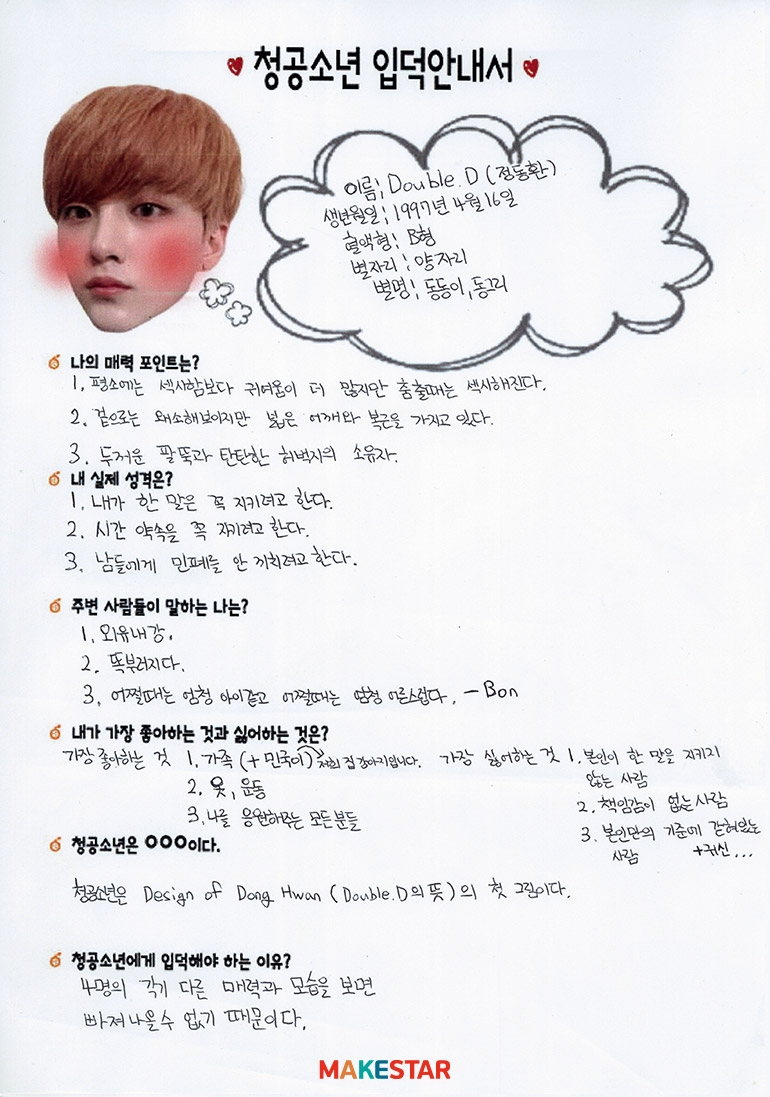 청공소년 입덕안내서
이름; Double.D (정동환)
생년월일; 1997년 4월 16일
혈액형; B형
별자리; 양자리
별명; 동동이, 동그리
나의 매력 포인트는?
1. 평소에는 섹시함보다 귀여움이 더 많지만 춤출때는 섹시해진다.
2. 겉으로는 왜소해보이지만 넓은 어깨와 복근을 가지고 있다.
3. 두꺼운 팔뚝과 탄탄한 허벅지의 소유자.
내 실제 성격은?
1. 내가 한 말은 꼭 지키려고 한다.
2. 시간 약속을 꼭 지키려고 한다.
3. 남들에게 민폐를 안 끼치려고 한다.
주변 사람들이 말하는 나는?
1. 외유내강.
2. 똑부러지다.
3. 어쩔때는 엄청 아이같고 어쩔때는 엄청 어른스럽다. - Bon
내가 가장 좋아하는 것과 싫어하는 것은?
가장 좋아하는 것 1. 가족 (+ 민국이) 저희 집 강아지입니다.
2. 옷, 운동
3. 나를 응원해주는 모든 분들
가장 싫어하는 것 1. 본인이 한 말을 지키지
않는 사람
2. 책임감이 없는 사람
3. 본인만의 기준에 갇혀있는
사람 +귀신...
청공소년은 OOO이다.
청공소년은 Design of Dong Hwan (Double.D의 뜻)의 첫 그림이다.
청공소년에게 입덕해야 하는 이유?
4명의 각기 다른 매력과 모습을 보면
빠져나올수 없기 때문이다.
MAKESTAR